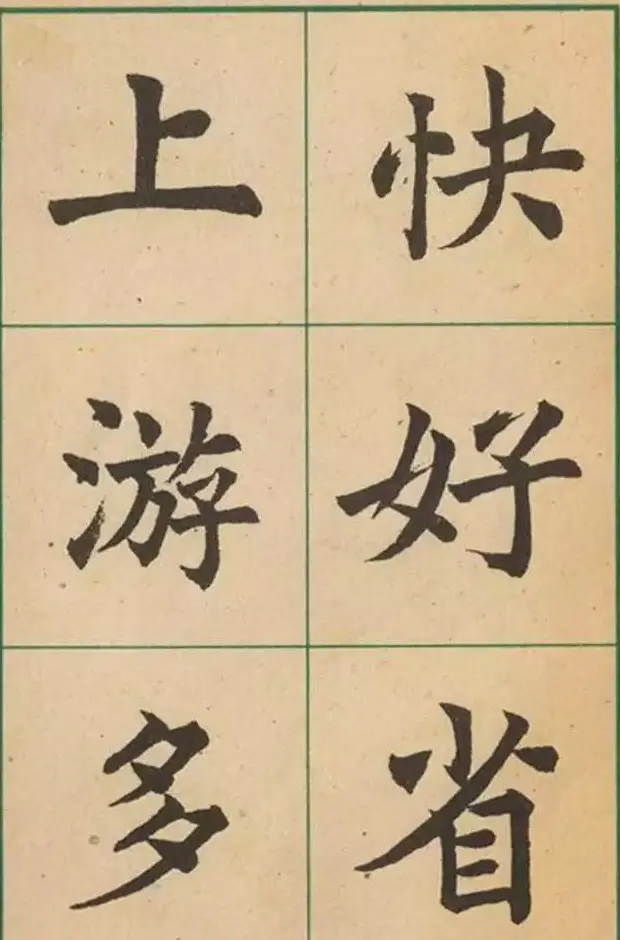 快好省
上游多